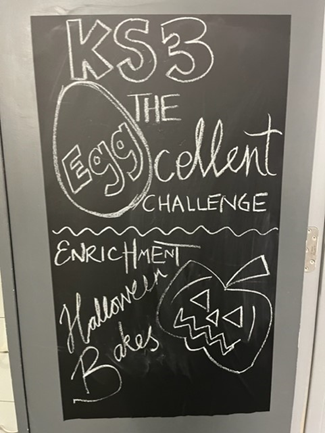 KS3
THE
Eggcellent
CHALLENGE
ENRICHMENT
Halloween
Bakes